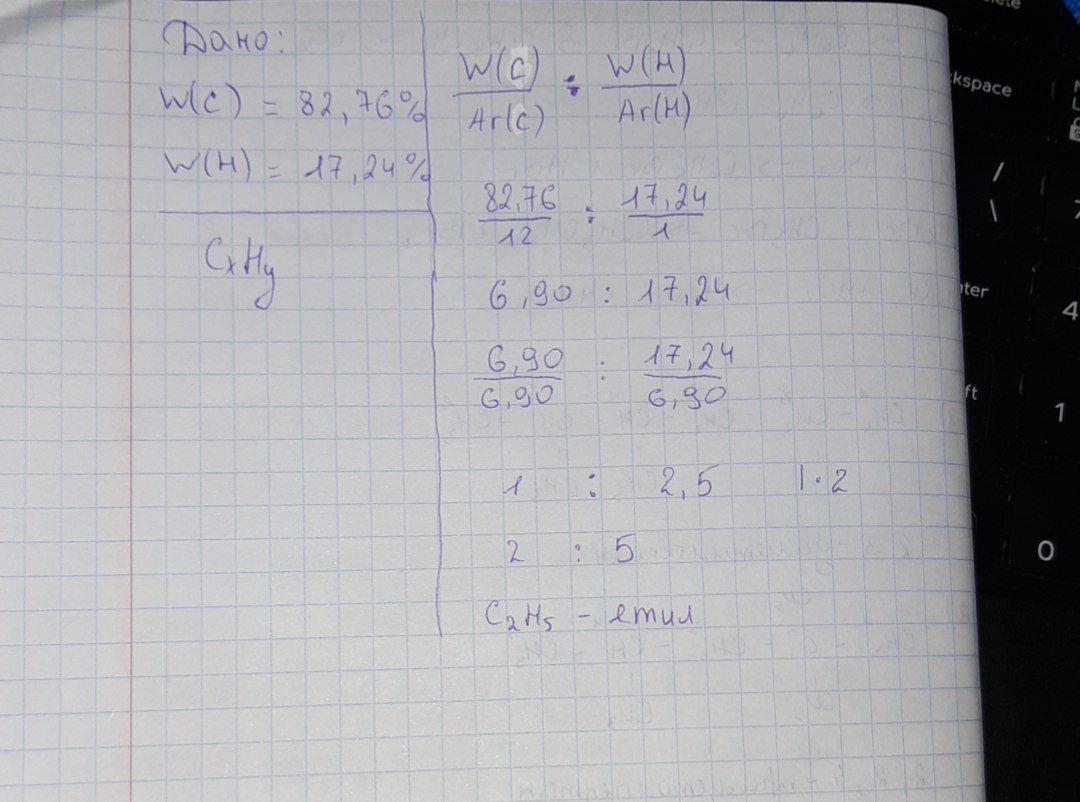 Дано:
W(C) = 82,76%
W(H) = 17,24%
CxHy
W(C)/Ar(C) : W(H)/Ar(H)
82,76/12 : 17,24/1
6,90 : 17,24
6,90/6,90 : 17,24/6,90
1 : 2,5 |·2
2 : 5
C₂H₅ - етил
kspace
/
\
ter
4
ft
1
0